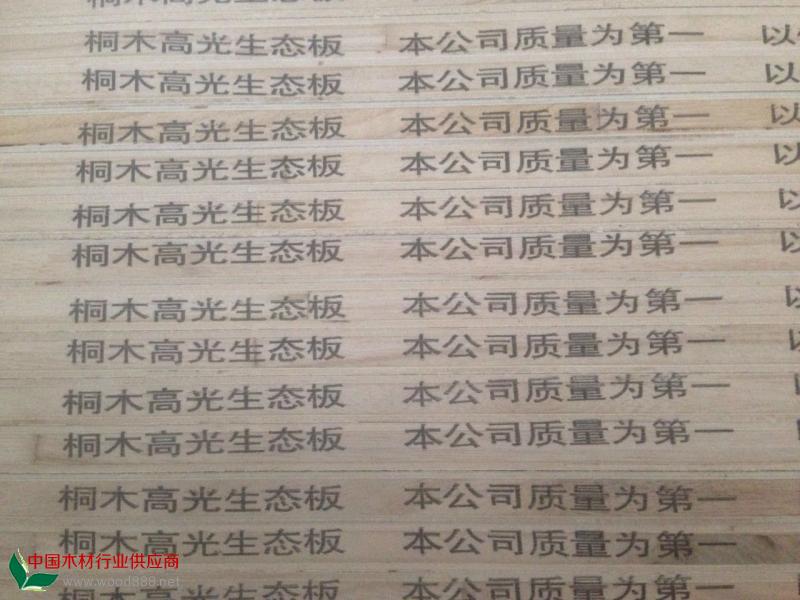 桐木高光生态板
桐木高光生态板 本公司质量为第一 以
桐木高光生态板 本公司质量为第一 以
桐木高光生态板 本公司质量为第一 以
桐木高光生态板 本公司质量为第一 以
桐木高光生态板 本公司质量为第一 以
桐木高光生态板 本公司质量为第一 以
桐木高光生态板 本公司质量为第一 以
桐木高光生态板 本公司质量为第一
桐木高光生态板 本公司质量为第一
桐木高光生态板 本公司质量为第一
桐木高光生态板 本公司质量为第一
桐木高光生态板 本公司质量为第一
桐木高光生态板 本公司质量为第一
中国木材行业供应商
www.wood888.net